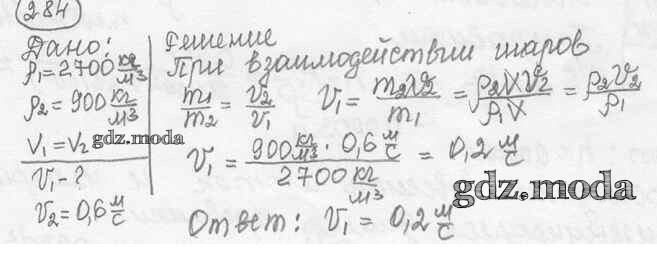 284
Дано:
ρ₁=2700 кг/м³
ρ₂=900 кг/м³
V₁=V₂
v₁-?
v₂=0,6 м/с
Решение
При взаимодействии шаров
m₁/m₂ = v₂/v₁ v₁= m₂v₂/m₁ = ρ₂Vv₂/ρ₁V = ρ₂v₂/ρ₁
v₁ = 900 кг/м³ · 0,6 м/с / 2700 кг/м³ = 0,2 м/с
Ответ: v₁ = 0,2 м/с
gdz.moda
gdz.moda